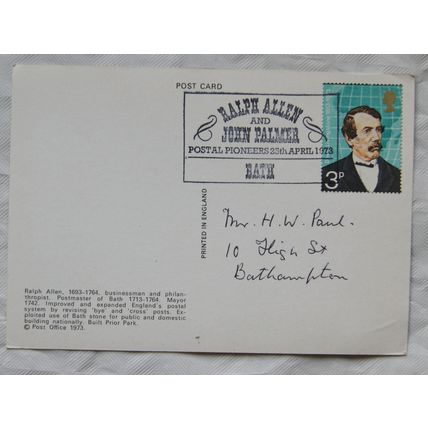 POST CARD
RALPH ALLEN
AND
JOHN PALMER
POSTAL PIONEERS 25th APRIL 1973
BATH
3P
PRINTED IN ENGLAND
Mr. H. W. Paul.
10 High St
Bathampton
Ralph Allen, 1693-1764, businessman and philan-
thropist. Postmaster of Bath 1713-1764. Mayor
1742. Improved and expanded England's postal
system by revising 'bye' and 'cross' posts. Ex-
ploited use of Bath stone for public and domestic
building nationally. Built Prior Park.
© Post Office 1973.